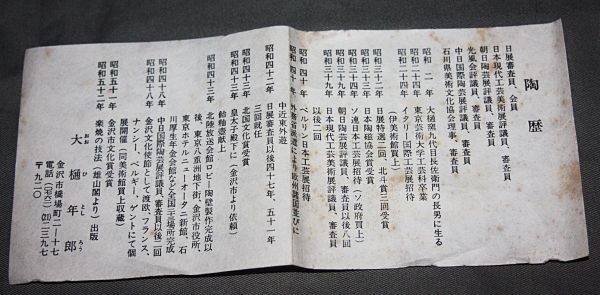 陶歴
日展審査員、会員
日本現代工芸美術展評議員、審査員
朝日陶芸展評議員、審査員
光風会評議員、審査員
中日国際陶芸展評議員、審査員
石川県美術文化協会理事、審査員
昭和 二年 大樋窯九代目長左衛門の長男に生る
昭和二十四年 東京芸術大学工芸科卒業
イタリー国際工芸展招待
（伊美術館買上）
昭和三十二年 日展特選二回、北斗賞三回受賞
昭和三十三年 日本陶磁協会賞受賞
昭和三十四年 ソ連日本工芸展招待（ソ政府買上）
昭和三十九年 朝日陶芸展評議員、審査員以後八回
昭和三十九年 日本現代工芸美術展評議員、審査員
以後二回
昭和 四十年 ベルリン日本工芸展招待
外務省派遣により欧州諸国並びに
中近東外遊
昭和四十二年 日展審査員以後四十七年、五十一年
三回就任
昭和四十三年 北国文化賞受賞
昭和四十三年 皇太子殿下に（金沢市より依頼）
飾釉壺献上
昭和四十三年 北陸放送会館ロビー陶壁製作完成以
後、東京八重洲地下街、金沢市役所、
東京ホテルニューオータニ新館、石
川厚生年金会館など全国二十三場所完成
昭和四十七年 中日国際陶芸展評議員、審査員以後二回
昭和四十八年 金沢文化使節として渡欧、フランス、
ナンシー、ベルギー、ゲントにて個
展開催（同美術館買上収蔵）
昭和五十一年 金沢市文化賞受賞
昭和五十二年 楽焼の技法（雄山閣より）出版
大樋年郎
おおひとしろう
金沢市橋場町二―十七
電話（〇七六二）（21）二三九七
〒九二〇